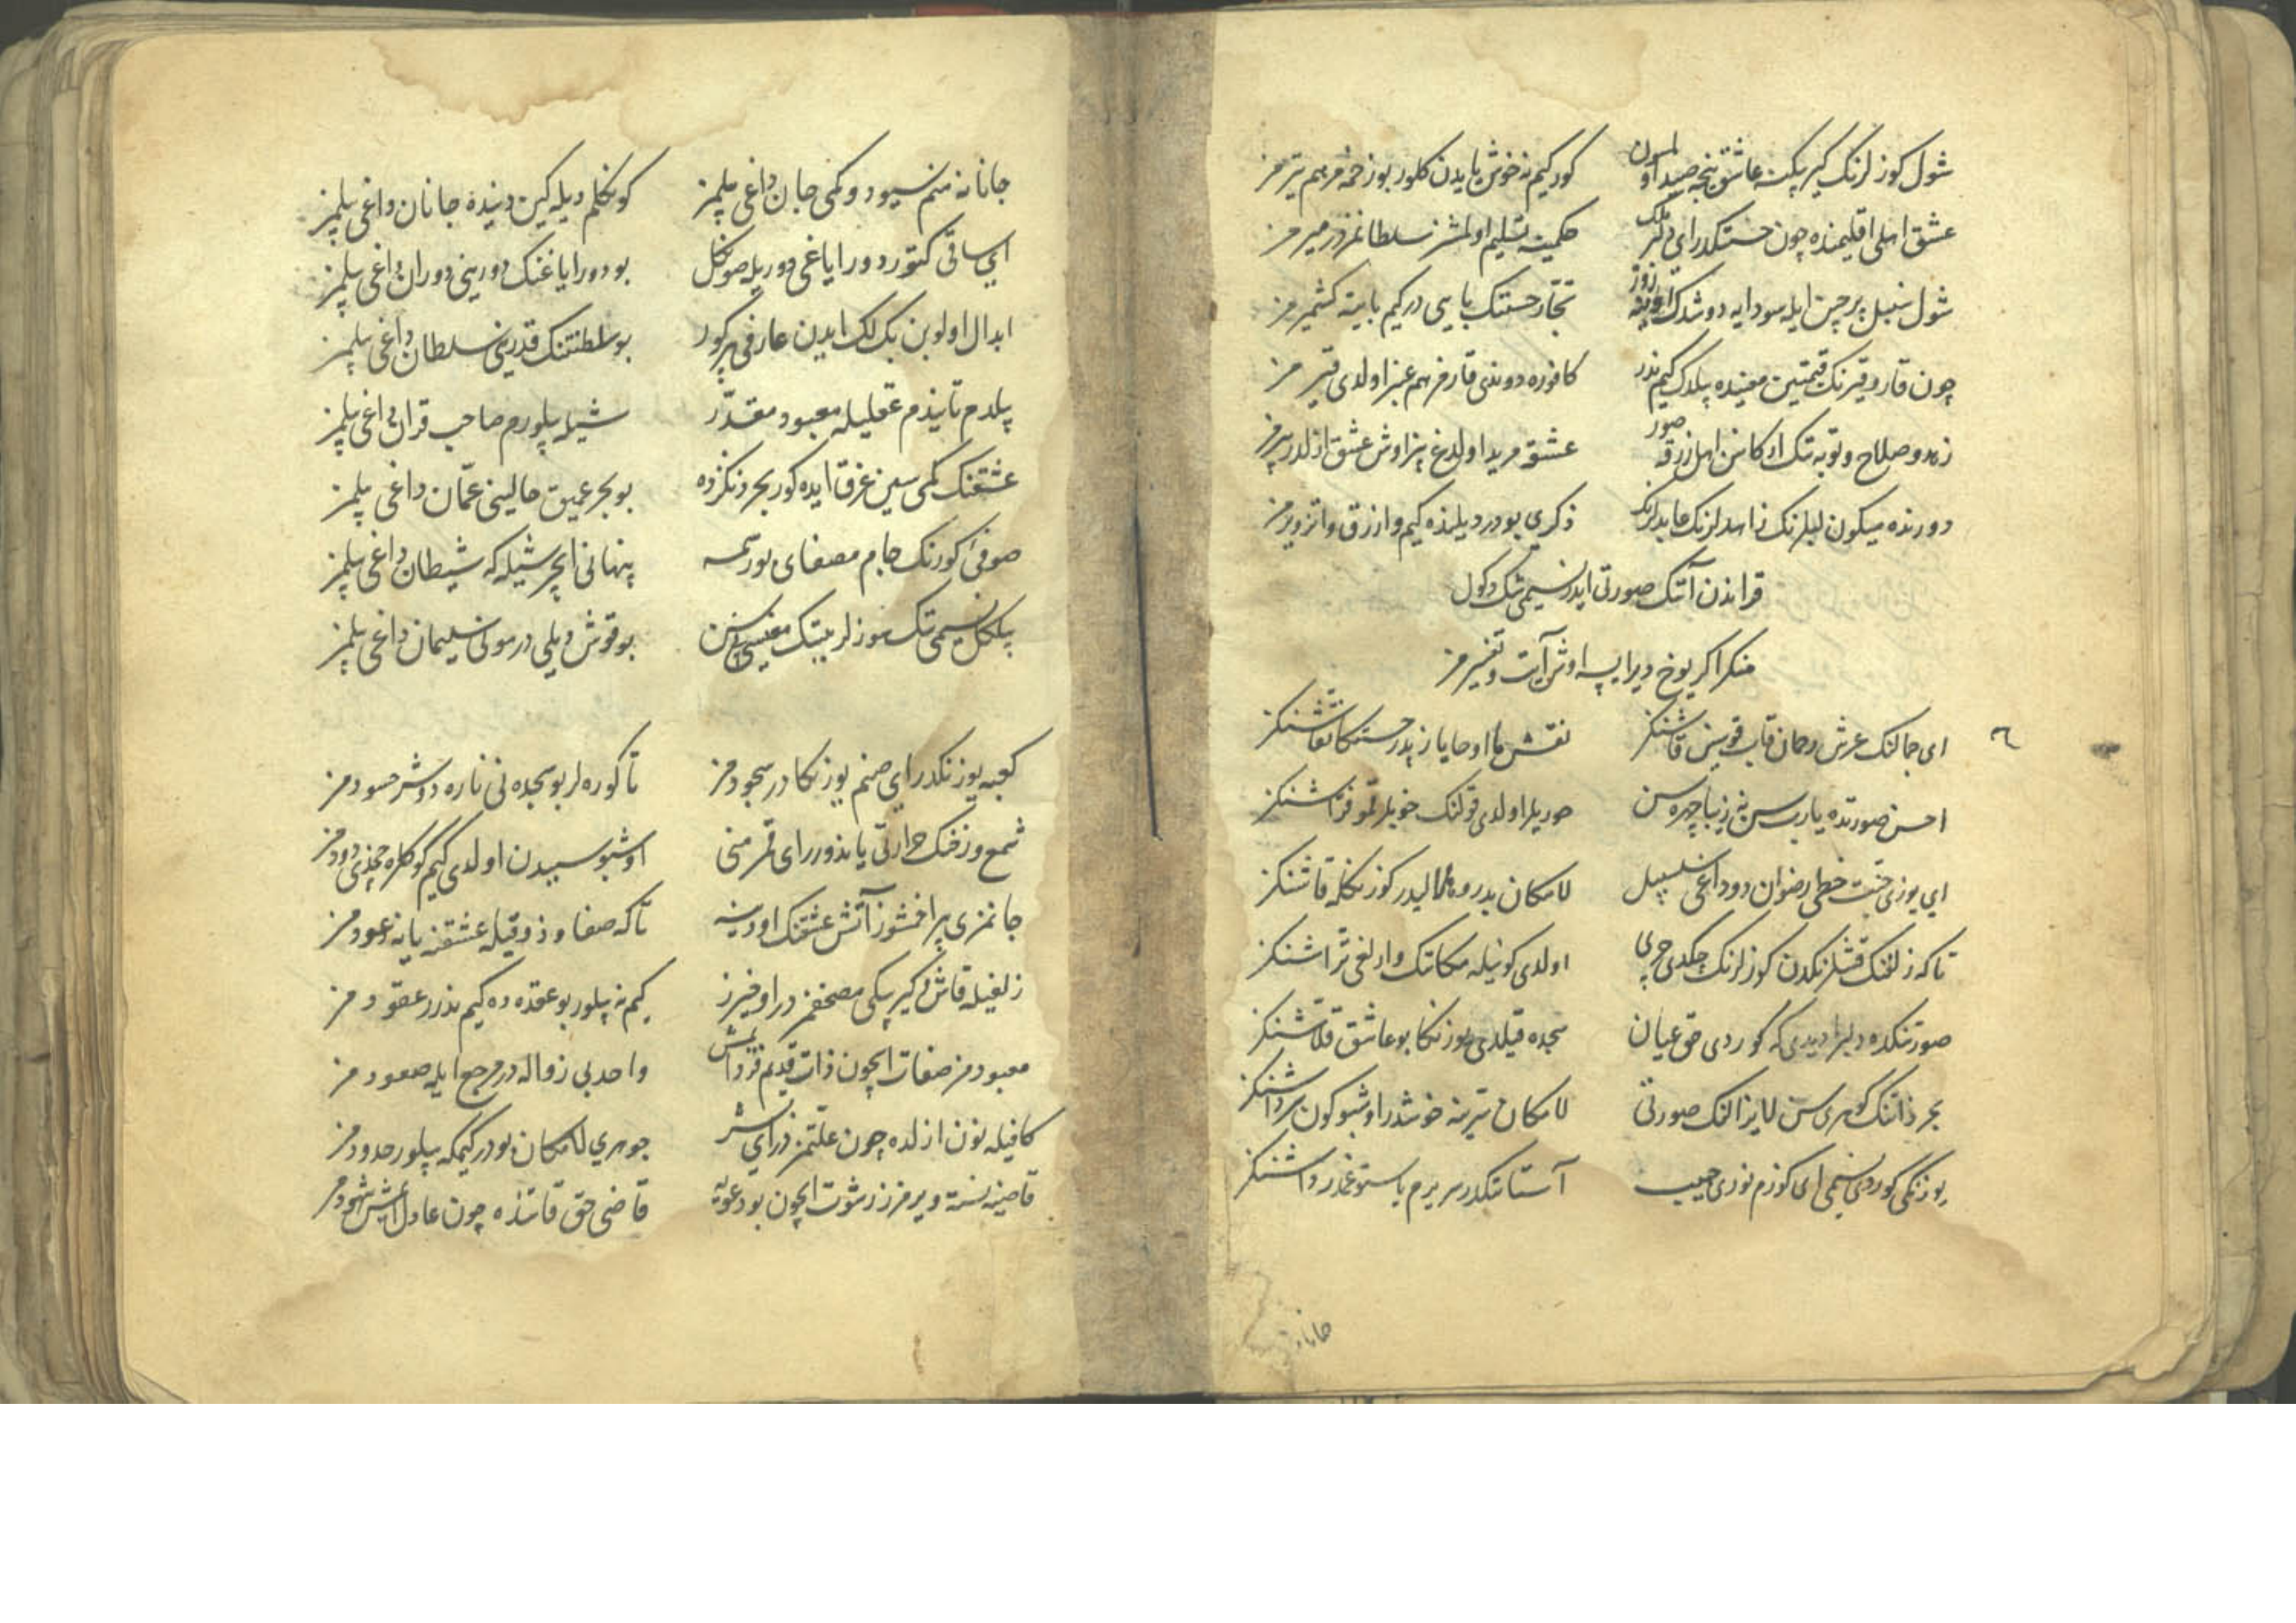 شول کوزلرنک کیرپکنه عاشق نیجه صید اولمسون کور کیم نه خوش یایدن کلور بو زخمه مرهم تیرمز
عشق اهلی اقلیمنده چون حسنکدر ای دلبر ملک حکمینه تسلیم اولمشز سلطانمزدر میرمز
شول سنبل پرچین ایله سودایه دوشدک تجار حسنک بایی در کیم باینه کشمیرمز
چون قار و قیرنک قیمتین معینده بیلدک کیم ندر کافوره دوندی قارمز هم عنبر اولدی قیرمز
زهد و صلاح و توبه تک ارکانن اهل زرقه صور عشقه مرید اولدغ بز اوش عشق ازلدر پیرمز
دورنده میکون لبلرنک زاهدلرنک عابدلرنک ذکری بودر دیلنده کیم وار زرق وار تزویرمز
قراندن آنک صورتی ایدر نسیمی تک دکول
منکر اکر یوخ دیر ایسه اوش آیت و تفسیرمز
ای جمالنک عرش رحمان قاب قوسین قاشنکز نقش ما اوحایا زیدر حسنکا نقاشنکز
احسن صورتده یا رب سن نه زیبا چهره سن حوریلر اولدی قولنک خوبلر قمو فراشنکز
ای یوزی جنت خطی رضوان دوداغی سلسبیل لامکان بدر و هلالیدر کوزنکله قاشنکز
تا که زلفنک قشلرنکدن کوزلرنک چکدی چری اولدی کونیله مکانک وارلغی تراشنکز
صورتنکده دلبرا دیدی که کوردی حق عیان سجده قیلدی یوزنکا بو عاشق قلاشنکز
بحر ذاتنک کوهری سن لایزالنک صورتی لامکان تیرینه خوشدر اوشبو کون سرداشنکز
یوزنکی کوردی نسیمی ای کوزم نوری حبیب آستاننکدر سریرم یاستوغمدر داشنکز
جانانه منم سیودوکمی جان داغی بیلمز کونکلم دیله کین دنیده جانان داغی بیلمز
ای ساقی کتور دور ایاغی دوریله صونکل بو دور ایاغنک دورینی دوران داغی بیلمز
ابدال اولوبن بک لک ایدن عارفی کور بو سلطنتنک قدرینی سلطان داغی بیلمز
بیلدم تانیدم عقلیله معبود مقدر شیله بیلورم صاحب قران داغی بیلمز
عشقنک کمی سین غرق ایده کور بحر دنکزده بو بحر عمیق حالینی عمان داغی بیلمز
صوفی کورنک جام مصفای بو رسمه پنهانی ایچر شیله که شیطان داغی بیلمز
بیلکل نسیمی تک سوزلرینک بو قوش دیلی در مونی سلیمان داغی بیلمز
کعبه یوزنکدر ای صنم یوزنکادر سجودمز تا کوره لر بو سجده نی ناره دوشر حسودمز
شمع رخنک حرارتی یاندورر ای قمر منی اوشبو سببدن اولدی کیم کوکلره چخدی دودمز
جانمزی پر افمشوز آتش عشقنک اودینه تا که صفا و ذوقیله عشقنه یانه عودمز
زلفیله قاش و کیرپیکی مصحفمز در اوخیرز کیم نه بیلور بو عقده ده کیم ندرر عقودمز
معبودمز صفات ایچون ذات قدیم فرد ایمش واحد بی زواله در مرجع ایله صعودمز
کافیله نون ازلده چون علتمزدر ای بشر جوهری لامکان بودر کیمکه بیلور حدودمز
قاضینه نسته ویرمرز رشوت ایچون بو دعویه قاضی حق قاتنده چون عادل ایمش شهودمز
جانانه